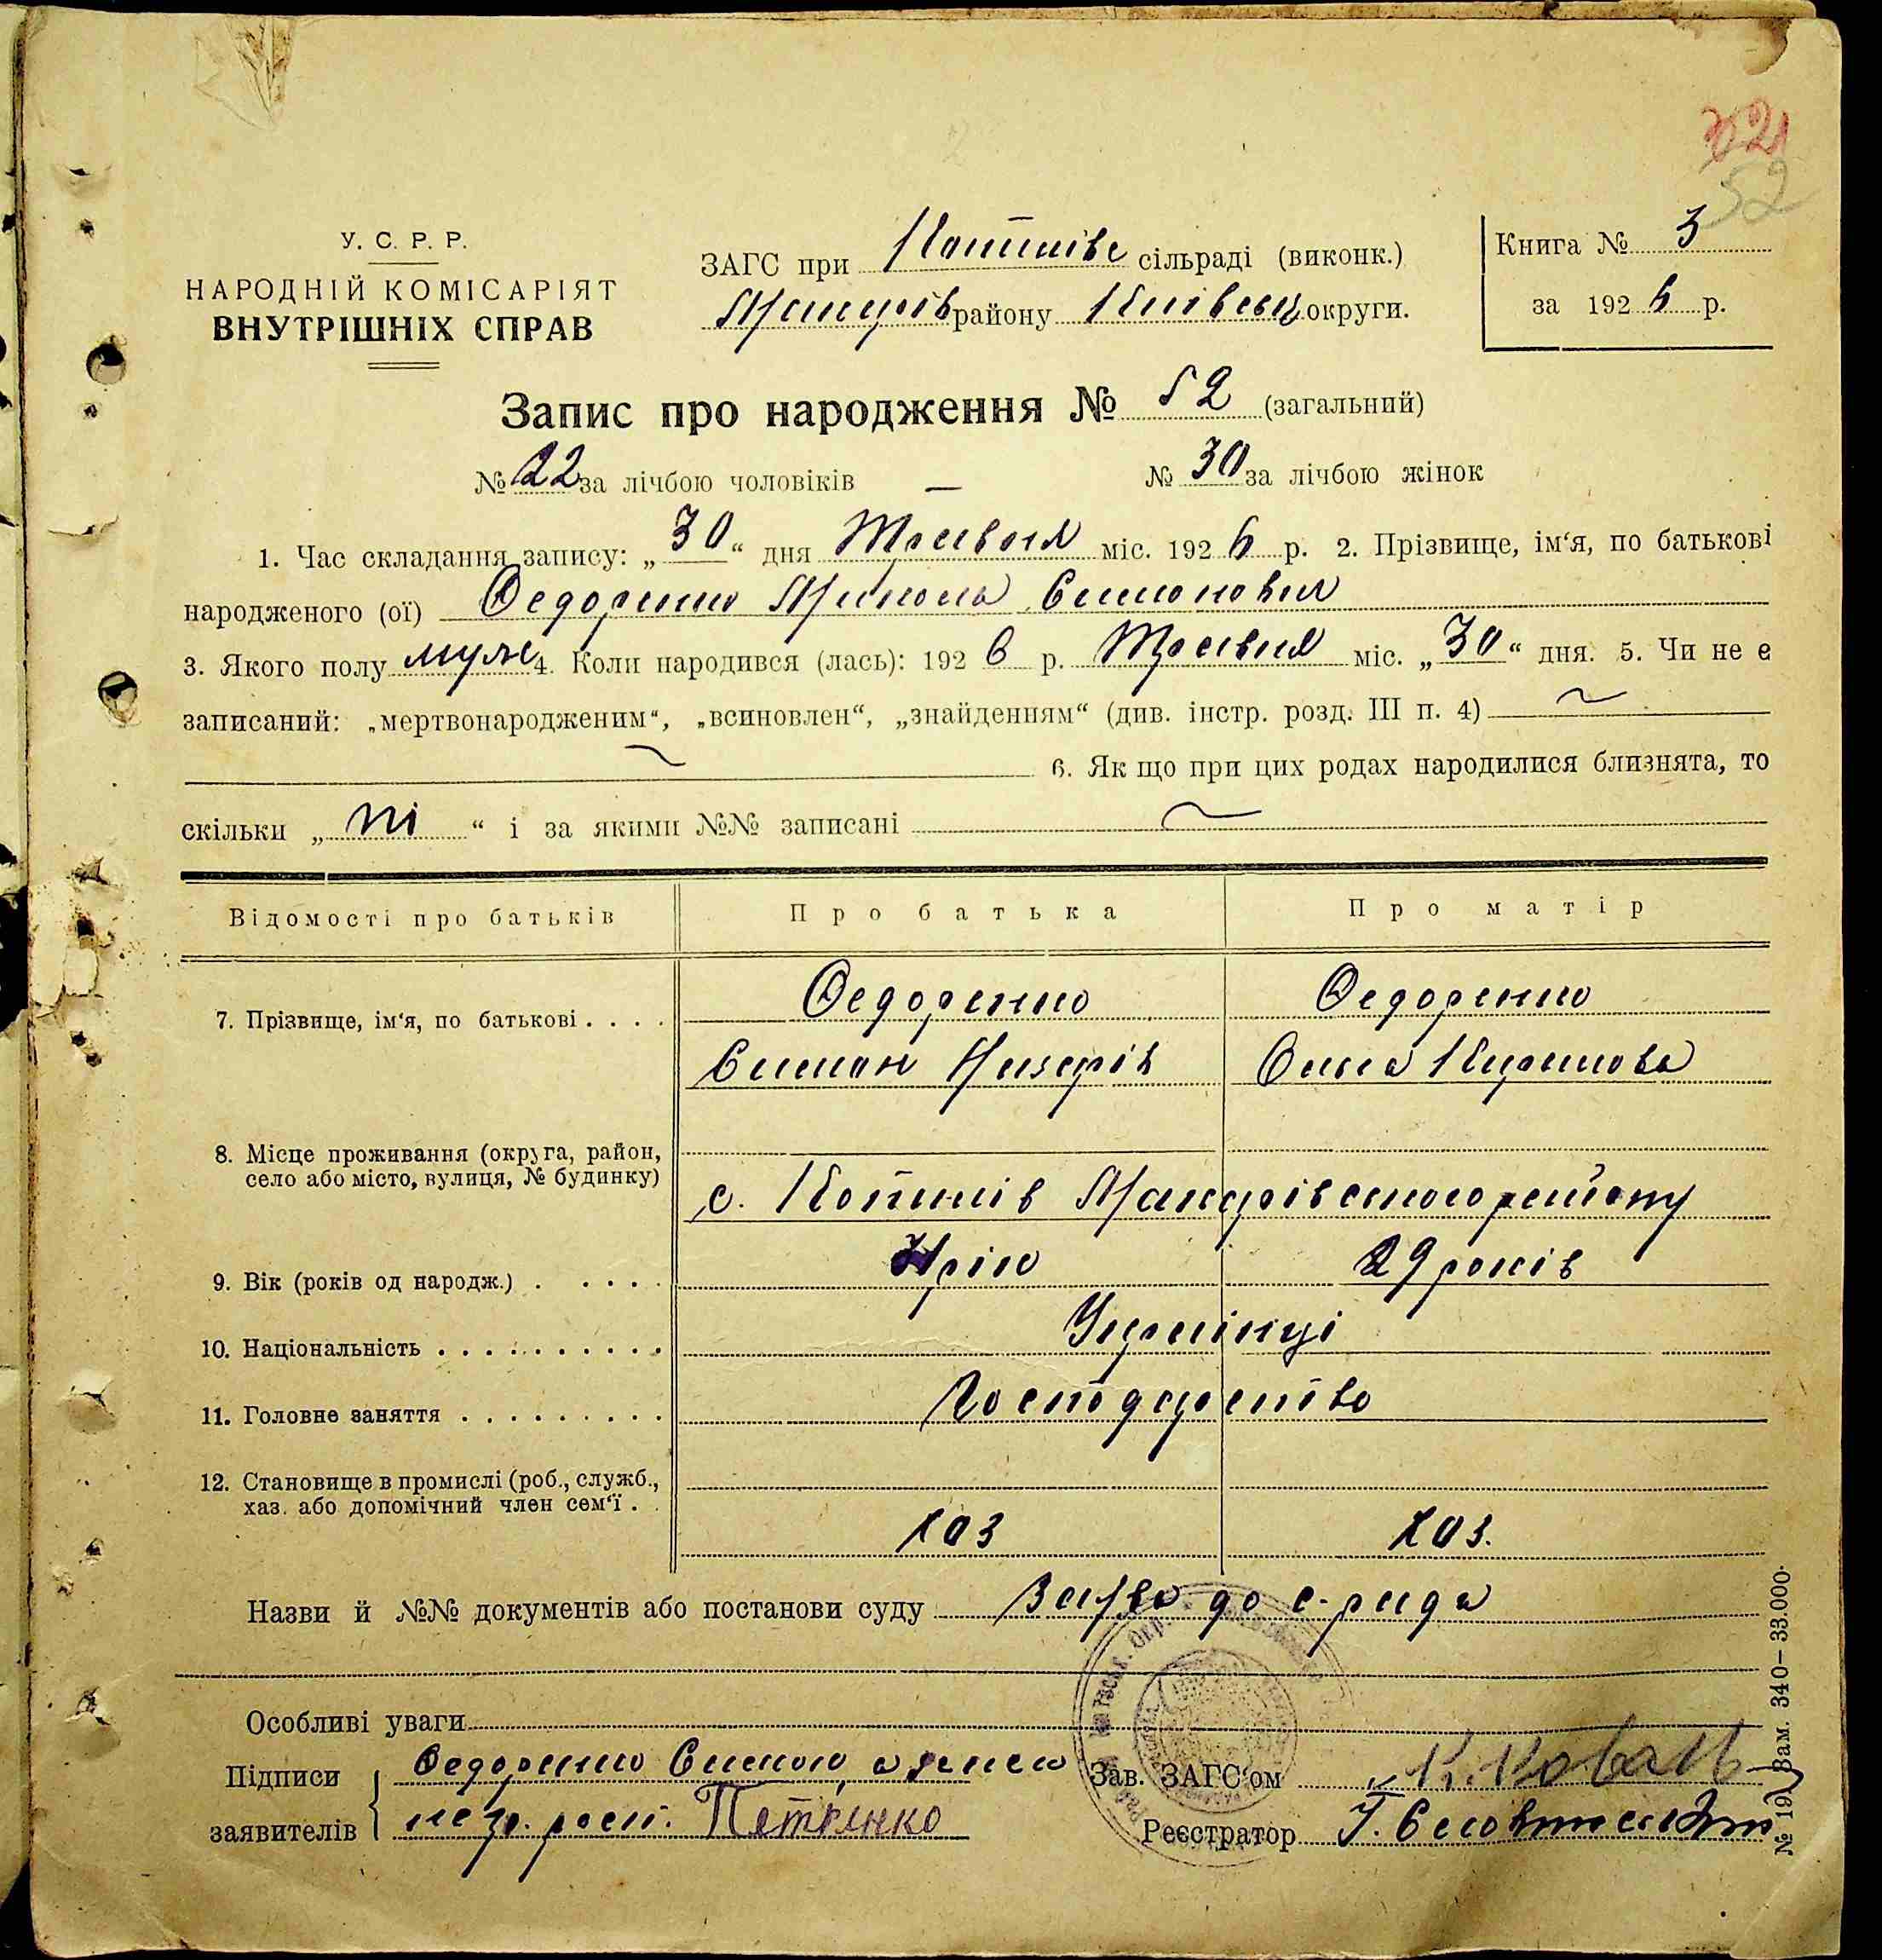 321
52
У. С. Р. Р.
НАРОДНІЙ КОМІСАРІЯТ
ВНУТРІШНІХ СПРАВ
ЗАГС при Копилівс сільраді (виконк.)
Макарів району Київськ округи.
Книга № 3
за 1926 р.
Запис про народження № 52 (загальний)
№ 22 за лічбою чоловіків — № 30 за лічбою жінок
1. Час складання запису: „30“ дня Травня міс. 1926 р. 2. Прізвище, ім‘я, по батькові
народженого (ої) Федоренко Микола Симонович
3. Якого полу муж 4. Коли народився (лась): 1926 р. Травня міс. „30“ дня. 5. Чи не є
записаний: „мертвонародженим“, „всиновлен“, „знайденням“ (див. інстр. розд. III п. 4) ~
~ 6. Як що при цих родах народилися близнята, то
скільки „ні“ і за якими №№ записані ~
Відомості про батьків Про батька Про матір
7. Прізвище, ім‘я, по батькові . . . . Федоренко Федоренко
Симон Назарів Ольга Кирилова
8. Місце проживання (округа, район,
село або місто, вулиця, № будинку)
с. Копилів Макарівського району
9. Вік (років од народж.) . . . . . рік 29 років
10. Національність . . . . . . . . . . Українці
11. Головне заняття . . . . . . . . . Господарство
12. Становище в промислі (роб., служб.,
хаз. або допомічний член сем‘ї . .
хаз хаз.
Назви й №№ документів або постанови суду Заява до с-ради
Особливі уваги
Підписи
заявителів
Федоренко Симон, а за него
негр. росп. Петренко
Зав. ЗАГС‘ом К. Коваль
Реєстратор І.
№ 19 Зам. 340–33.000.